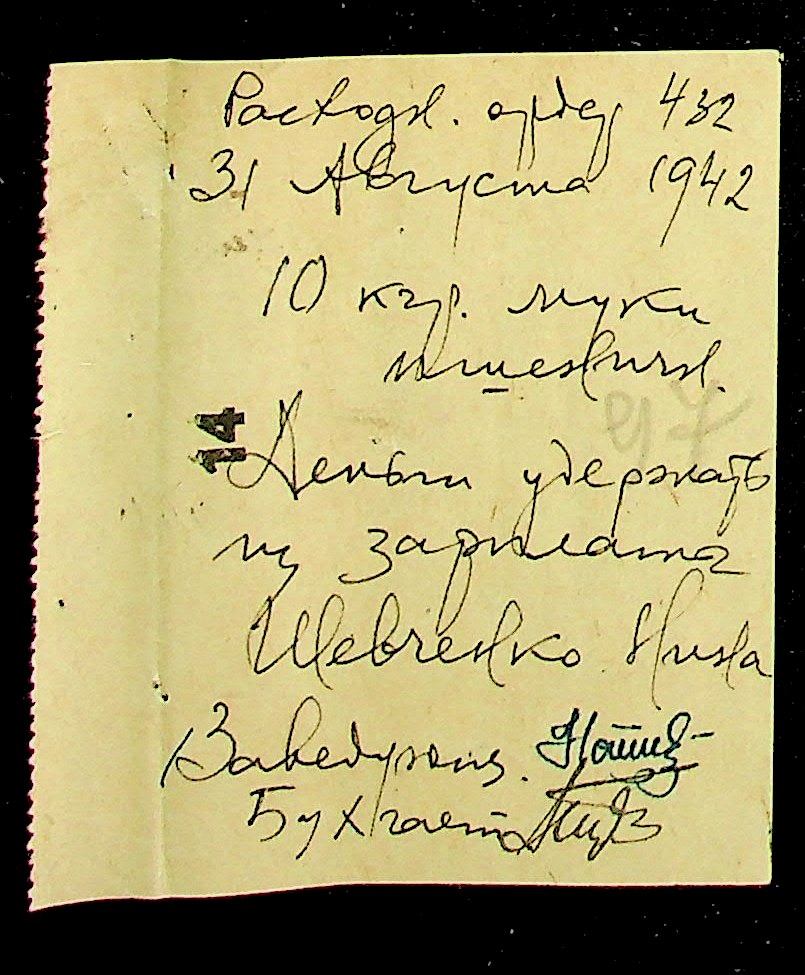 Расходн. ордер 432
31 Августа 1942
10 кгр. муки
пшеничн.
97
14
Деньги удержать
из зарплата
Шевченко Нина
Заведующ.
Бухгалт